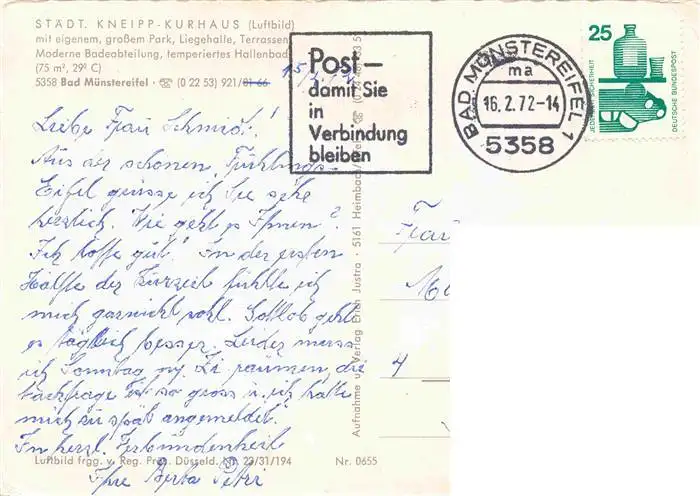 STÄDT. KNEIPP-KURHAUS (Luftbild)
mit eigenem, großem Park, Liegehalle, Terrassen
Moderne Badeabteilung, temperiertes Hallenbad
(75 m², 29° C)
5358 Bad Münstereifel · ☎ (0 22 53) 921/81 66
Post –
damit Sie
in
Verbindung
bleiben
BAD MÜNSTEREIFEL 1
ma
16.2.72-14
5358
25
JEDERZEIT SICHERHEIT
DEUTSCHE BUNDESPOST
Liebe Frau Schmidt!
Aus der schönen Frühlings-
Eifel grüsse ich Sie sehr
herzlich. Wie geht es Ihnen?
Ich hoffe gut! In der ersten
Hälfte der Kurzeit fühlte ich
mich garnicht wohl. Gottlob geht
es täglich besser. Leider muss
ich Sonntag my Zi räumen, die
Nachfrage ist so gross u. ich hatte
mich zu spät angemeldet.
In herzl. Verbundenheit
Ihre Berta Petri
Luftbild frgg. v. Reg. Präs. Düsseld. Nr. 23/31/194
Nr. 0655
Aufnahme u. Verlag Erich Justra · 5161 Heimbach/Eifel
Frau
4